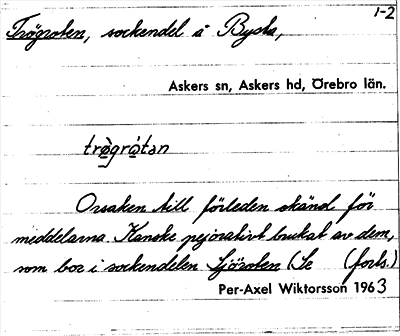 1-2
Trögroten, sockendel i Bysta,
Askers sn, Askers hd, Örebro län.
trø̀grɷ́tən
Orsaken till förleden okänd för
meddelarna. Kanske pejorativt brukat av dem,
som bor i sockendelen Sjöroten (Se (forts.)
Per-Axel Wiktorsson 1963